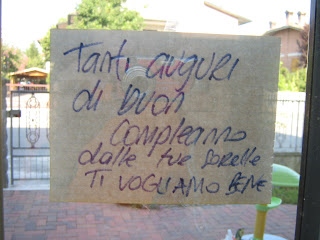 Tanti auguri
di buon
compleanno
dalle tue sorelle
TI VOGLIAMO BENE